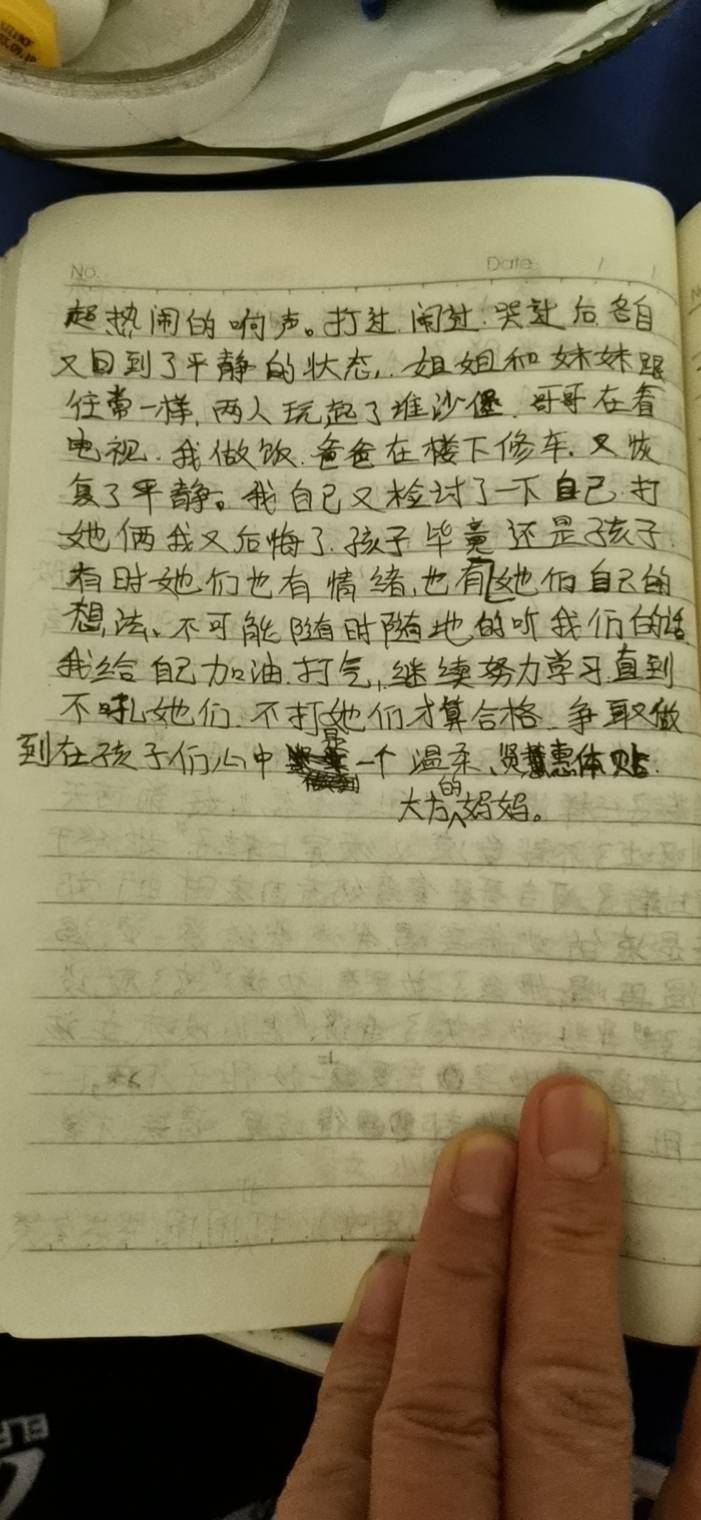 No.
Date
超热闹的响声。打过.闹过.哭过后.各自
又回到了平静的状态,.姐姐和妹妹跟
往常一样,两人玩起了堆沙堡.哥哥在看
电视.我做饭.爸爸在楼下修车.又恢
复了平静。我自己又检讨了一下自己.打
她俩我又后悔了.孩子毕竟还是孩子.
有时她们也有情绪,也有她们自己的
想法、不可能随时随地的听我们的话
我给自己加油.打气,继续努力学习.直到
不吼她们.不打她们才算合格.争取做
到在孩子们心中是一个温柔、贤惠体贴.
大方的妈妈。